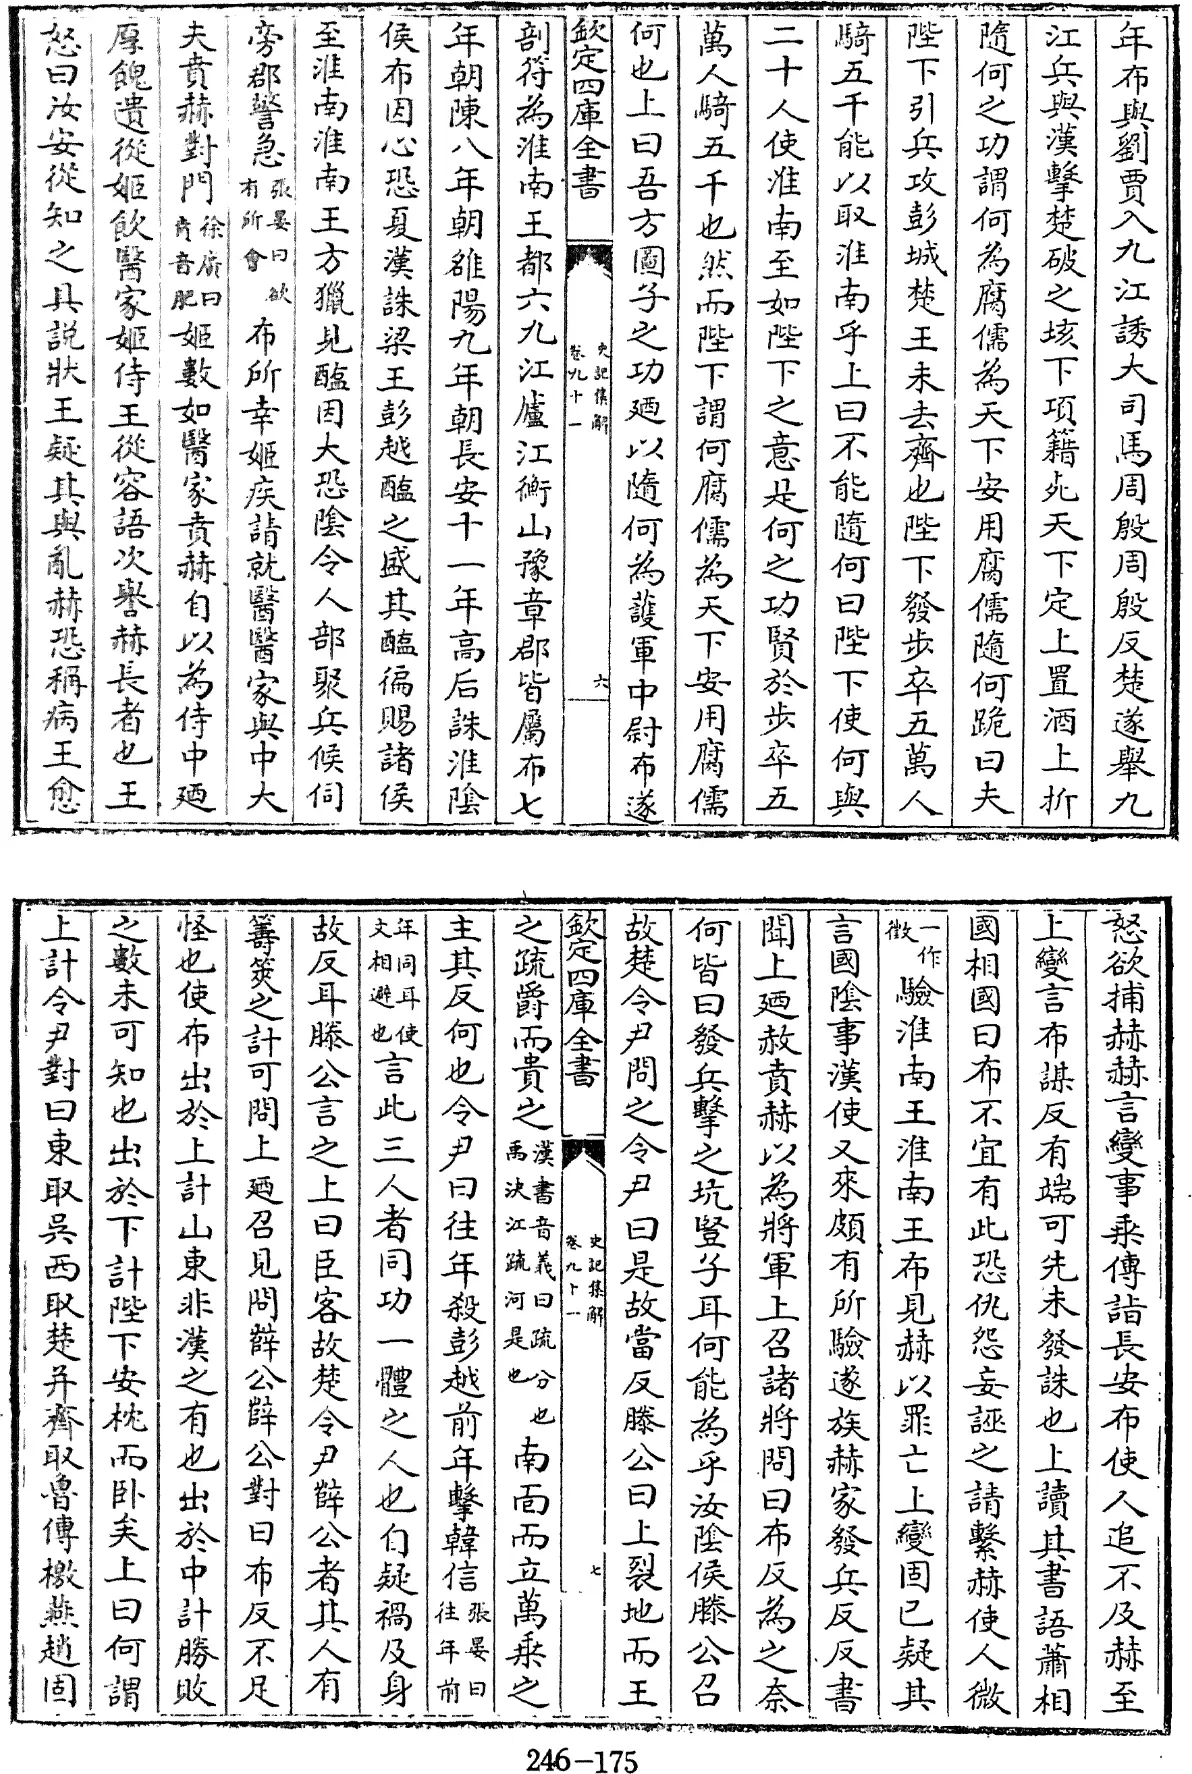 年布與劉賈入九江誘大司馬周殷周殷反楚遂舉九
江兵與漢擊楚破之垓下項籍死天下定上置酒上折
隨何之功謂何為腐儒為天下安用腐儒隨何跪曰夫
陛下引兵攻彭城楚王未去齊也陛下發步卒五萬人
騎五千能以取淮南乎上曰不能隨何曰陛下使何與
二十人使淮南至如陛下之意是何之功賢於步卒五
萬人騎五千也然而陛下謂何腐儒為天下安用腐儒
何也上曰吾方圖子之功廼以隨何為護軍中尉布遂
欽定四庫全書 史記集解 卷九十一 六
剖符為淮南王都六九江廬江衡山豫章郡皆屬布七
年朝陳八年朝雒陽九年朝長安十一年高后誅淮陰
侯布因心恐夏漢誅梁王彭越醢之盛其醢徧賜諸侯
至淮南淮南王方獵見醢因大恐陰令人部聚兵候伺
旁郡警急張晏曰欲有所會布所幸姬疾請就醫醫家與中大
夫賁赫對門徐廣曰賁音肥姬數如醫家賁赫自以為侍中廼
厚餽遺從姬飲醫家姬侍王從容語次譽赫長者也王
怒曰汝安從知之具説狀王疑其與亂赫恐稱病王愈
怒欲捕赫赫言變事乘傳詣長安布使人追不及赫至
上變言布謀反有端可先未發誅也上讀其書語蕭相
國相國曰布不宜有此恐仇怨妄誣之請繫赫使人微
一作徴驗淮南王淮南王布見赫以罪亡上變固已疑其
言國陰事漢使又來頗有所驗遂族赫家發兵反反書
聞上廼赦賁赫以為將軍上召諸將問曰布反為之奈
何皆曰發兵擊之坑豎子耳何能為乎汝陰侯滕公召
故楚令尹問之令尹曰是故當反滕公曰上裂地而王
欽定四庫全書 史記集解 卷九十一 七
之疏爵而貴之漢書音義曰疏分也禹決江疏河是也南面而立萬乘之
主其反何也令尹曰往年殺彭越前年擊韓信張晏曰往年前
年同耳使文相避也言此三人者同功一體之人也自疑禍及身
故反耳滕公言之上曰臣客故楚令尹薛公者其人有
籌筴之計可問上廼召見問薛公薛公對曰布反不足
怪也使布出於上計山東非漢之有也出於中計勝敗
之數未可知也出於下計陛下安枕而卧矣上曰何謂
上計令尹對曰東取吳西取楚并齊取魯傳檄燕趙固
246-175